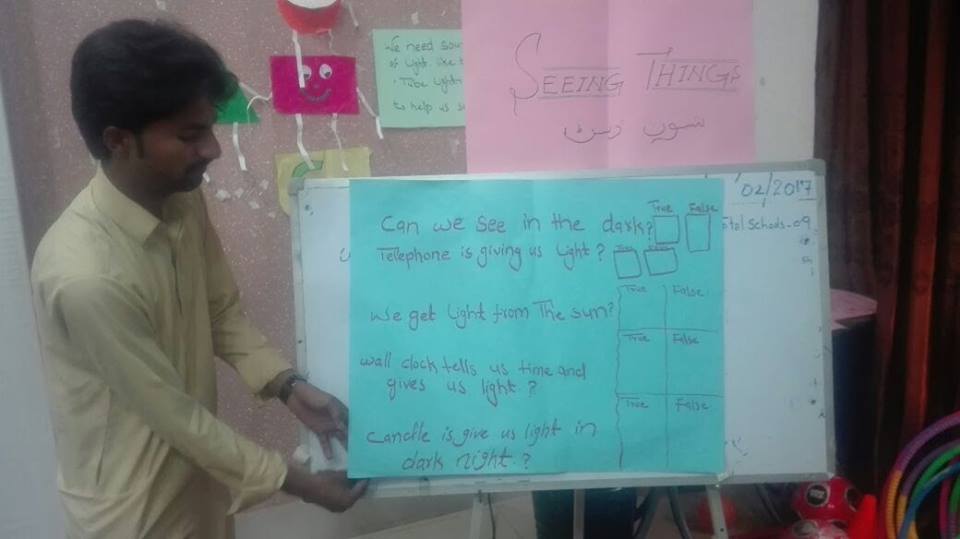 We need sour
of light like t
• Tube light
to help us s
SEEING THINGS
02/2017
otal Schools - 09
Can we see in the dark? True False
Tellephone is giving us light? True
We get light from The sun? True False
wall clock tells us time and True False
gives us light?
candle is give us light in True False
dark night.?